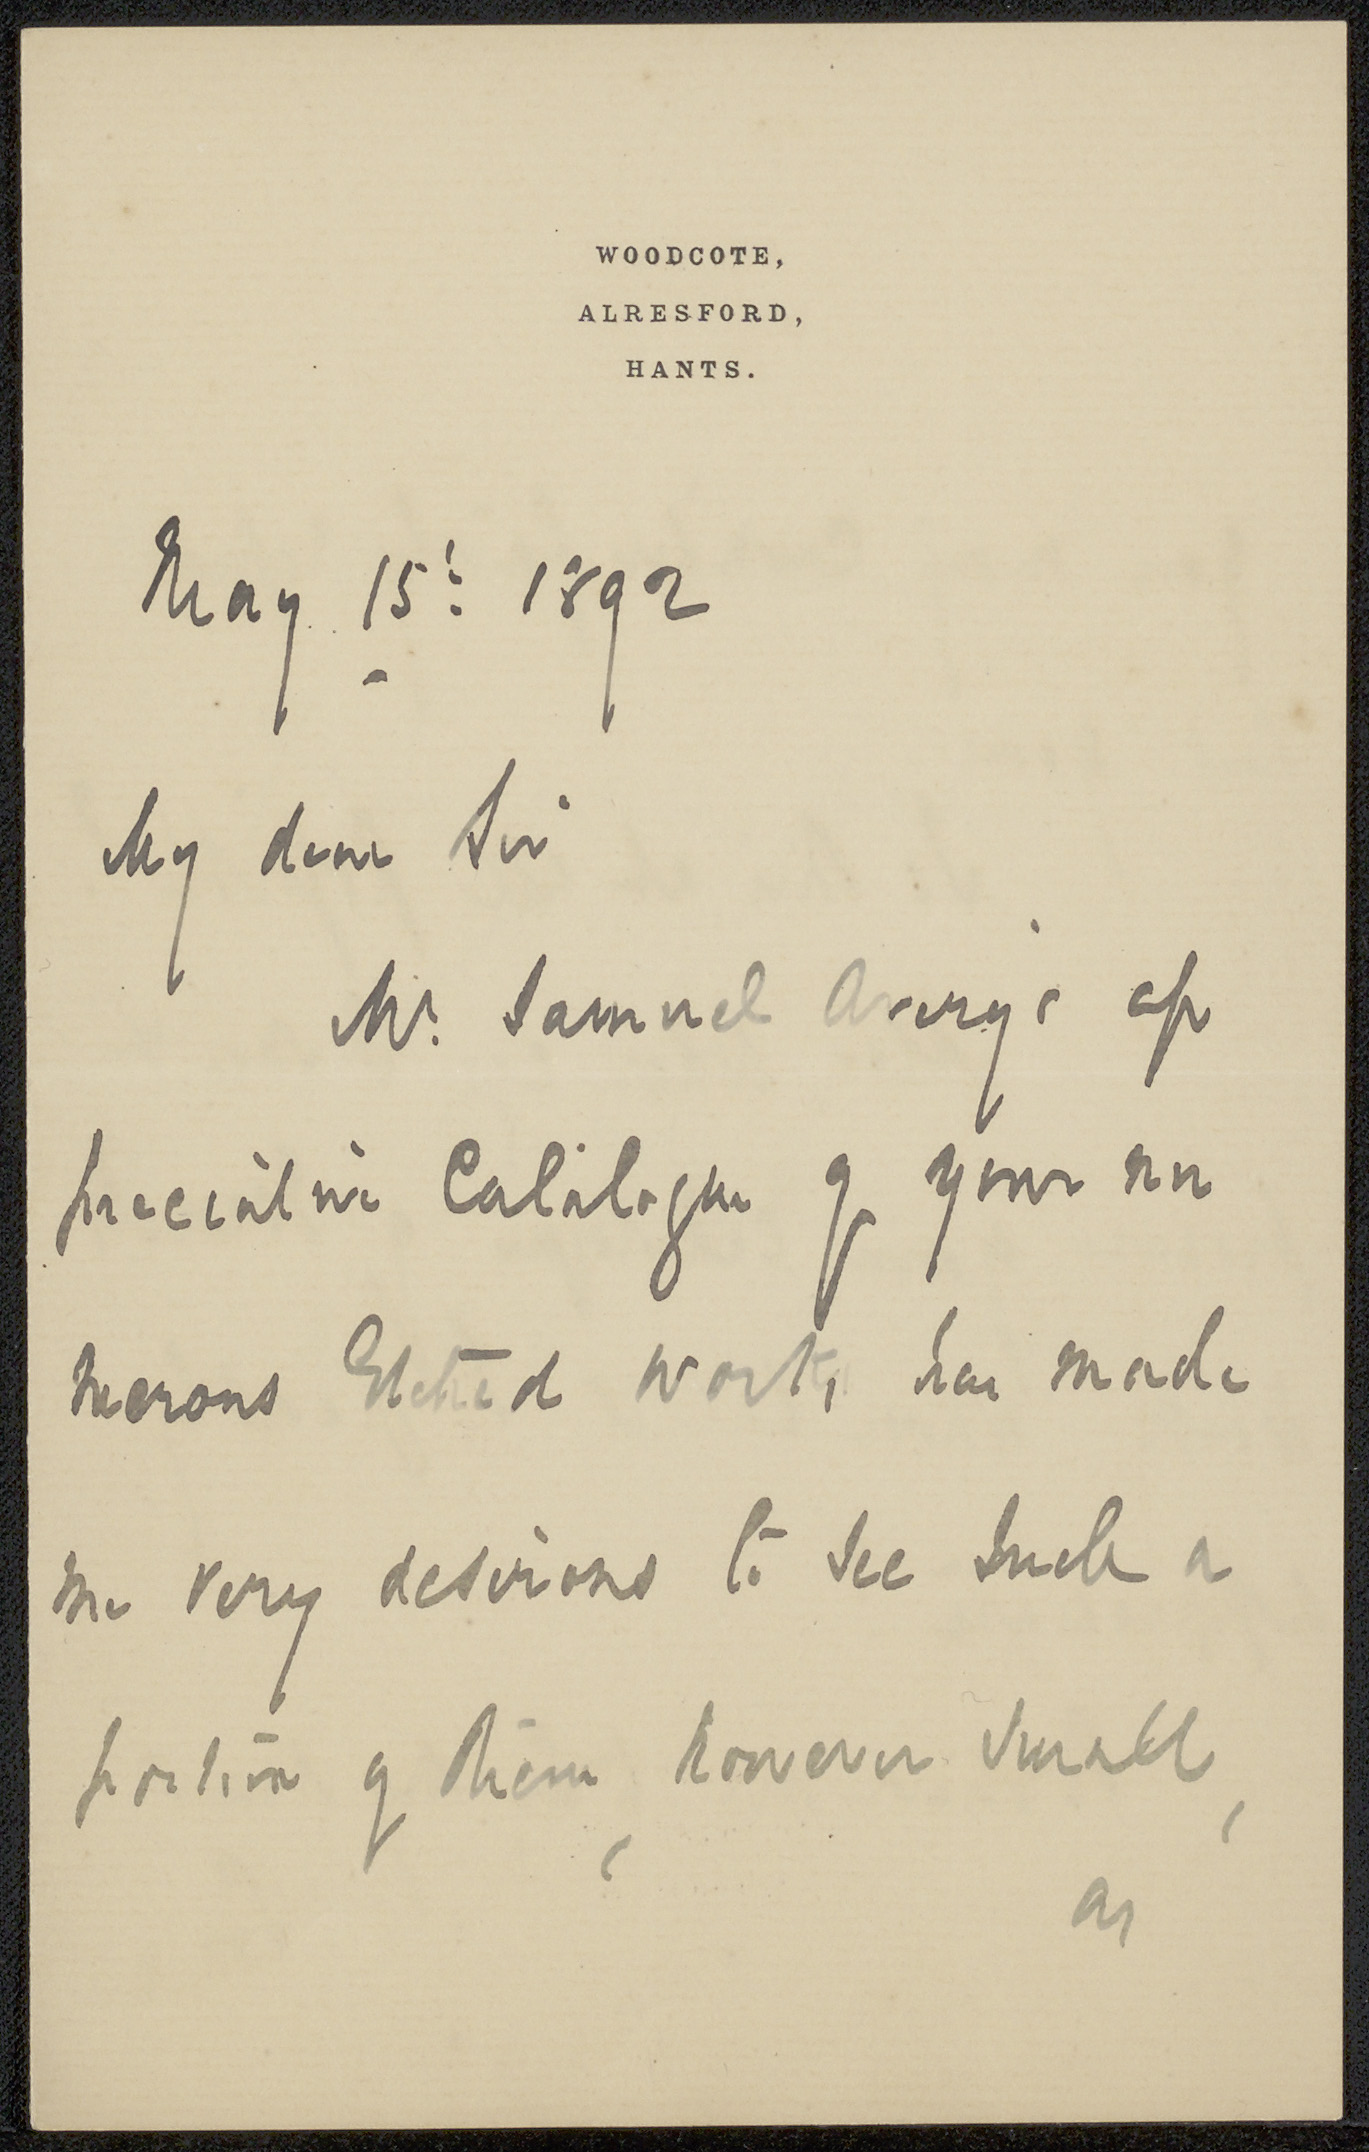 WOODCOTE,
ALRESFORD,
HANTS.
May 15t: 1892
My dear Sir
Mr. Samuel Avery's ap
preciative Catalogue of your nu
merous Etched works has made
me very desirous to see such a
portion of them, however small,
as